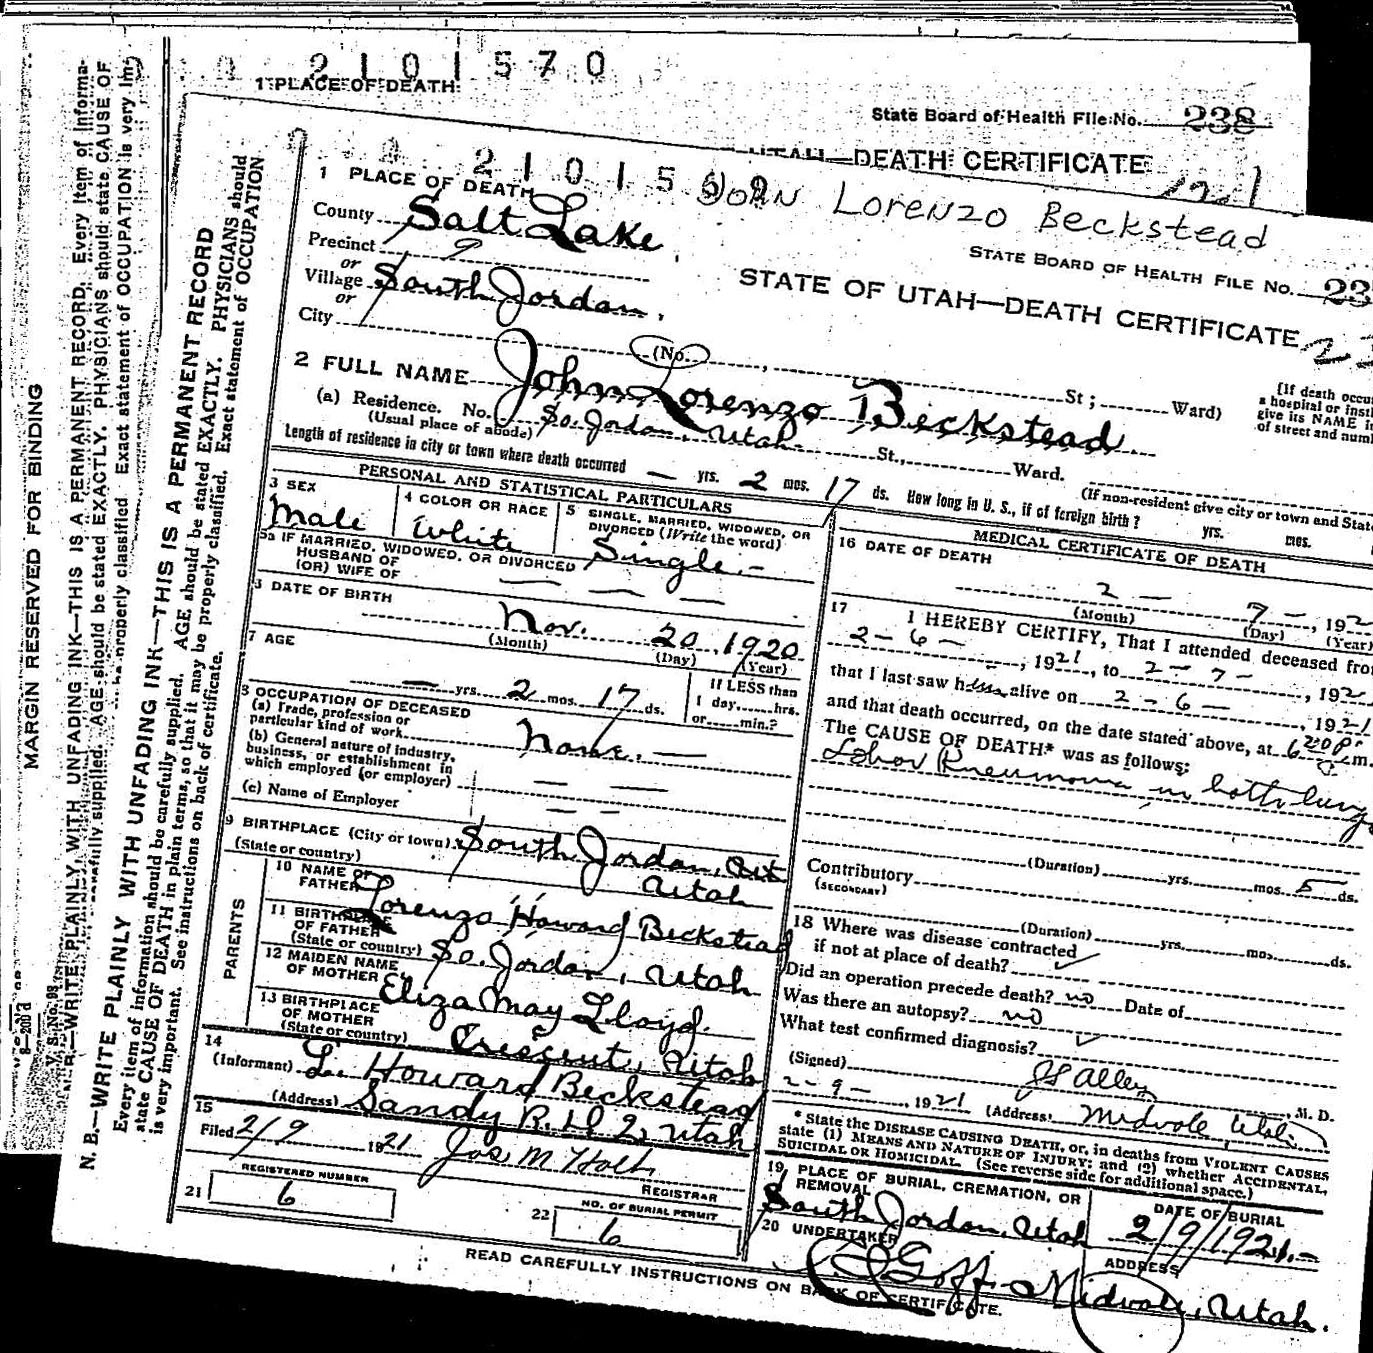 2101570
1 PLACE OF DEATH
State Board of Health File No. 238
UTAH—DEATH CERTIFICATE
MARGIN RESERVED FOR BINDING
N. B.—WRITE PLAINLY, WITH UNFADING INK—THIS IS A PERMANENT RECORD. Every item of informa-
carefully supplied. AGE should be stated EXACTLY. PHYSICIANS should state CAUSE OF
properly classified. Exact statement of OCCUPATION is very im
N. B.—WRITE PLAINLY WITH UNFADING INK—THIS IS A PERMANENT RECORD
Every item of information should be carefully supplied. AGE should be stated EXACTLY. PHYSICIANS should
state CAUSE OF DEATH in plain terms, so that it may be properly classified. Exact statement of OCCUPATION
is very important. See instructions on back of certificate.
John Lorenzo Beckstead
STATE BOARD OF HEALTH FILE NO. 23
STATE OF UTAH—DEATH CERTIFICATE
1 PLACE OF DEATH
County Salt Lake
Precinct 9
or
Village South Jordan,
or
City
(No. St; Ward)
[If death occu
a hospital or inst
give its NAME i
of street and num
2 FULL NAME John Lorenzo Beckstead
(a) Residence. No. So. Jordan, Utah St., Ward.
(Usual place of abode)
(If non-resident give city or town and Stat
Length of residence in city or town where death occurred — yrs. 2 mos. 17 ds. How long in U. S., if of foreign birth? yrs. mos.
PERSONAL AND STATISTICAL PARTICULARS
3 SEX
Male
4 COLOR OR RACE
White
5 SINGLE, MARRIED, WIDOWED, OR
DIVORCED (Write the word)
Single.—
5a IF MARRIED, WIDOWED, OR DIVORCED
HUSBAND OF
(OR) WIFE OF
— — —
DATE OF BIRTH
Nov. 20, 1920
(Month) (Day) (Year)
7 AGE
— yrs. 2 mos. 17 ds.
If LESS than
1 day hrs.
or min.?
OCCUPATION OF DECEASED
(a) Trade, profession or
particular kind of work
None. —
(b) General nature of industry,
business, or establishment in
which employed (or employer) — —
(c) Name of Employer — —
9 BIRTHPLACE (City or town) South Jordan, Ut
(State or country) Utah
PARENTS
10 NAME OF
FATHER Lorenzo Howard Beckstead
11 BIRTHPLACE
OF FATHER
(State or country) So. Jordan, Utah
12 MAIDEN NAME
OF MOTHER Eliza May Lloyd.
13 BIRTHPLACE
OF MOTHER
(State or country) Crescent, Utah
14
(Informant) L. Howard Beckstead
(Address) Sandy R. D 2, Utah
15
Filed 2/9 1921 Jos M Holt
REGISTRAR
REGISTERED NUMBER
21 6
22 NO. OF BURIAL PERMIT
6
MEDICAL CERTIFICATE OF DEATH
16 DATE OF DEATH
2 — 7 —, 192
(Month) (Day) (Year)
17 I HEREBY CERTIFY, That I attended deceased fro
2 – 6 –, 1921, to 2 – 7 –, 192
that I last saw him alive on 2 – 6 –, 1921
and that death occurred, on the date stated above, at 6 20 P. m.
The CAUSE OF DEATH* was as follows:
Lobar Pneumonia in both lungs
(Duration) yrs. mos. 5 ds.
Contributory
(SECONDARY)
(Duration) yrs. mos. ds.
18 Where was disease contracted
if not at place of death? ✓
Did an operation precede death? no Date of
Was there an autopsy? no
What test confirmed diagnosis? ✓
(Signed) Allen, M. D.
2 – 9 –, 1921 (Address) Midvale, Utah.
* State the DISEASE CAUSING DEATH, or, in deaths from VIOLENT CAUSES
state (1) MEANS AND NATURE OF INJURY; and (2) whether ACCIDENTAL,
SUICIDAL OR HOMICIDAL. (See reverse side for additional space.)
19 PLACE OF BURIAL, CREMATION, OR
REMOVAL
South Jordan, Utah
DATE OF BURIAL
2/9/1921.—
20 UNDERTAKER
Goff
ADDRESS
Midvale, Utah.
READ CAREFULLY INSTRUCTIONS ON BACK OF CERTIFICATE.